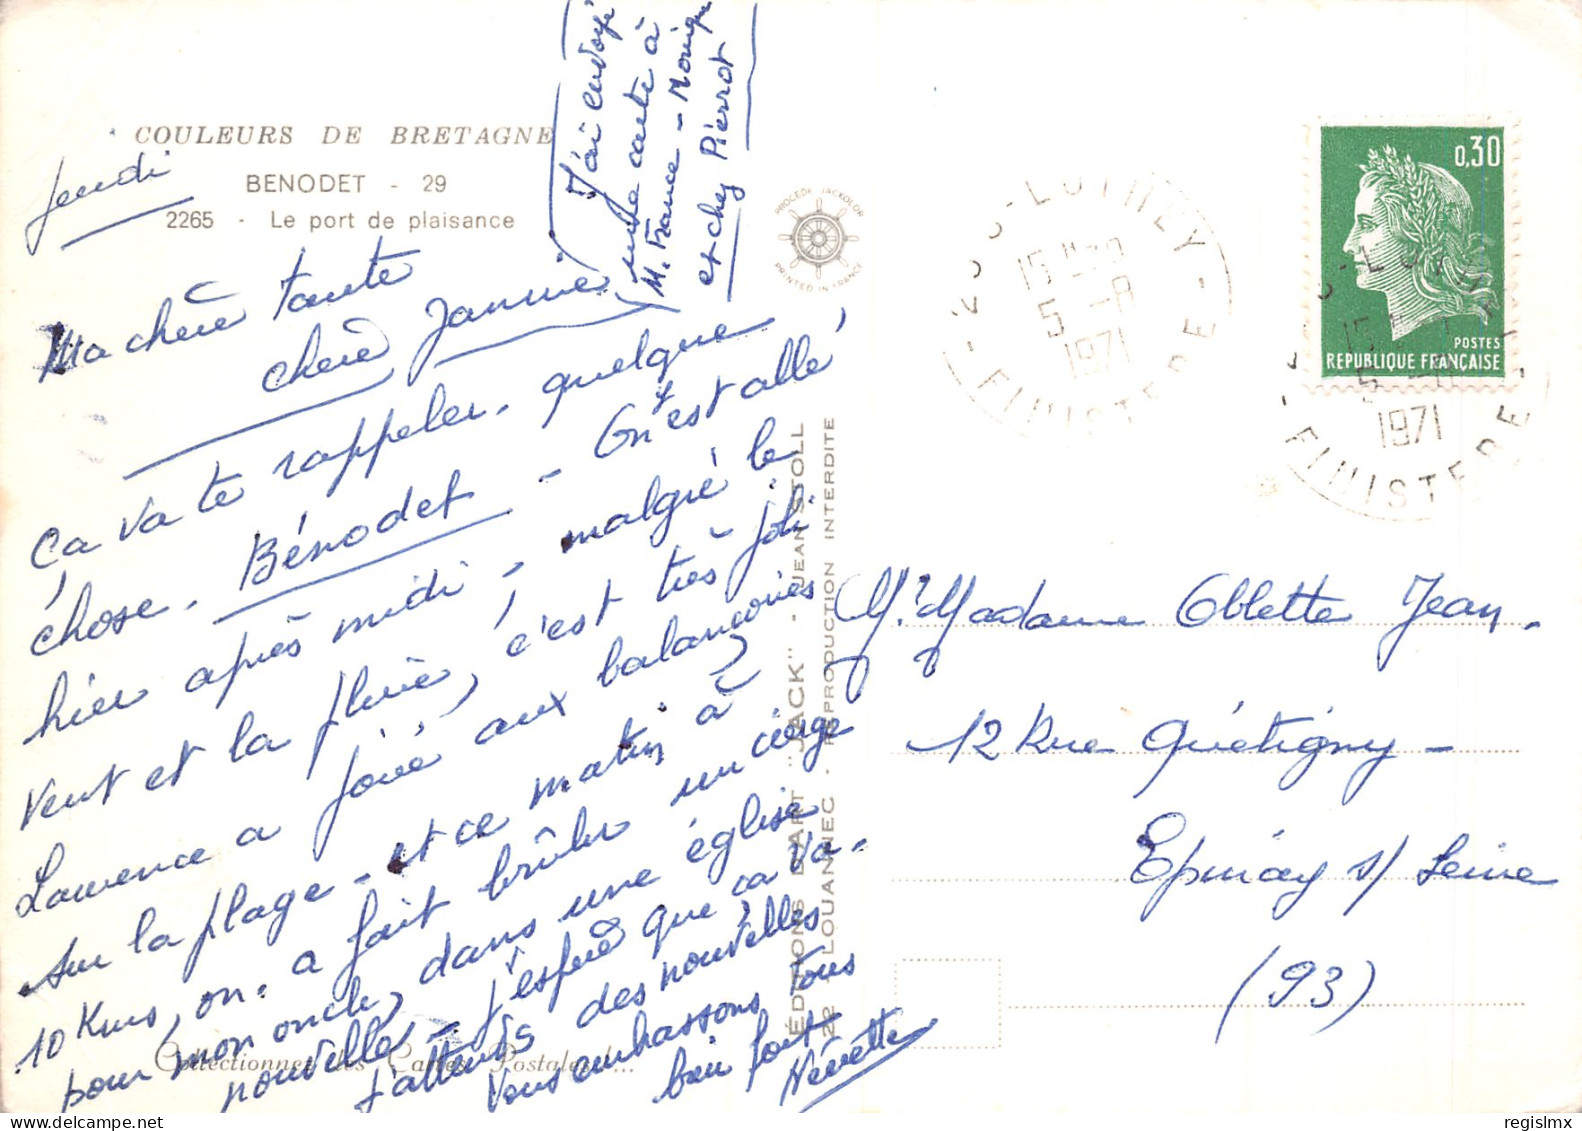 COULEURS DE BRETAGNE
BENODET - 29
2265 - Le port de plaisance
Jeudi
J'ai envoyé
une carte à
M. France - Monique
et chez Pierrot
Ma chère Tante
chère Jannie
Ça va te rappeler quelque
chose. Bénodet - On est allé
hier après midi, malgré le
vent et la pluie, c'est très joli
Laurence a joué aux balançoires
sur la plage - et ce matin à
10 Kms, on a fait brûler un cierge
pour mon oncle, dans une église
nouvelle - J'espère que ça va.
J'attends des nouvelles
Vous embrassons tous
bien fort
Névette
Collectionnez les Cartes Postales...
PROCÉDÉ JACKOLOR
PRINTED IN FRANCE
ÉDITIONS D'ART "JACK" - JEAN STOLL
22 LOUANNEC - REPRODUCTION INTERDITE
15 H
5 -8
1971
FINISTERE
0,30
POSTES
REPUBLIQUE FRANÇAISE
15 H
5 -8
1971
FINISTERE
Mr. Madame Oblette Jean.
12 Rue Quétigny -
Epinay s/ Seine
(93)
regislmx